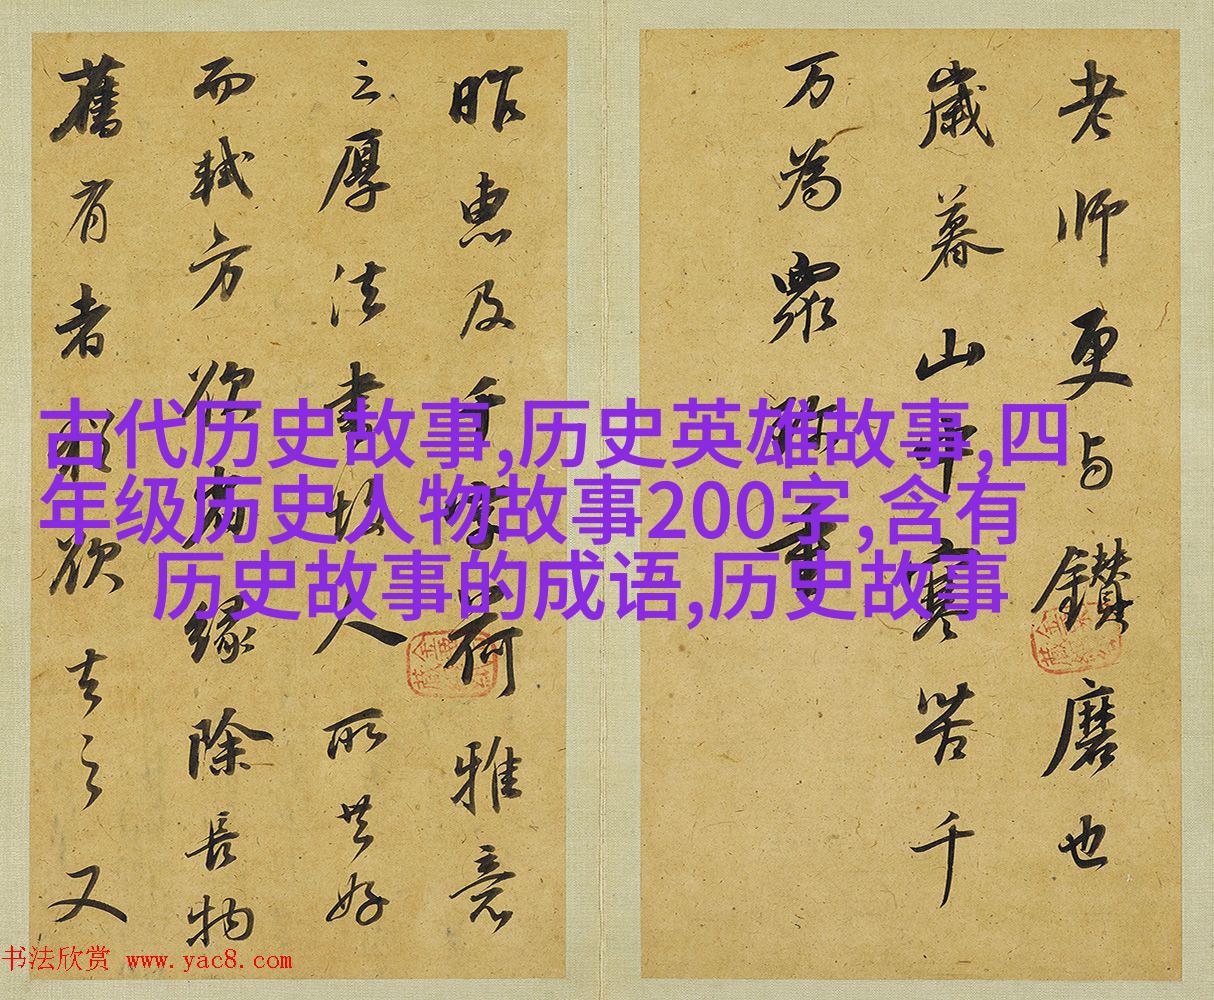 老师更与鑽磨也
歲暮山中寒苦千
万為眾珎重
昨惠及千字荷雅意
之厚法書人所共好
而軾方欲省緣除長物
舊有者猶欲去之又
古代历史故事,历史英雄故事,四
年级历史人物故事200字,含有
历史故事的成语,历史故事
书法欣赏 www.yac8.com